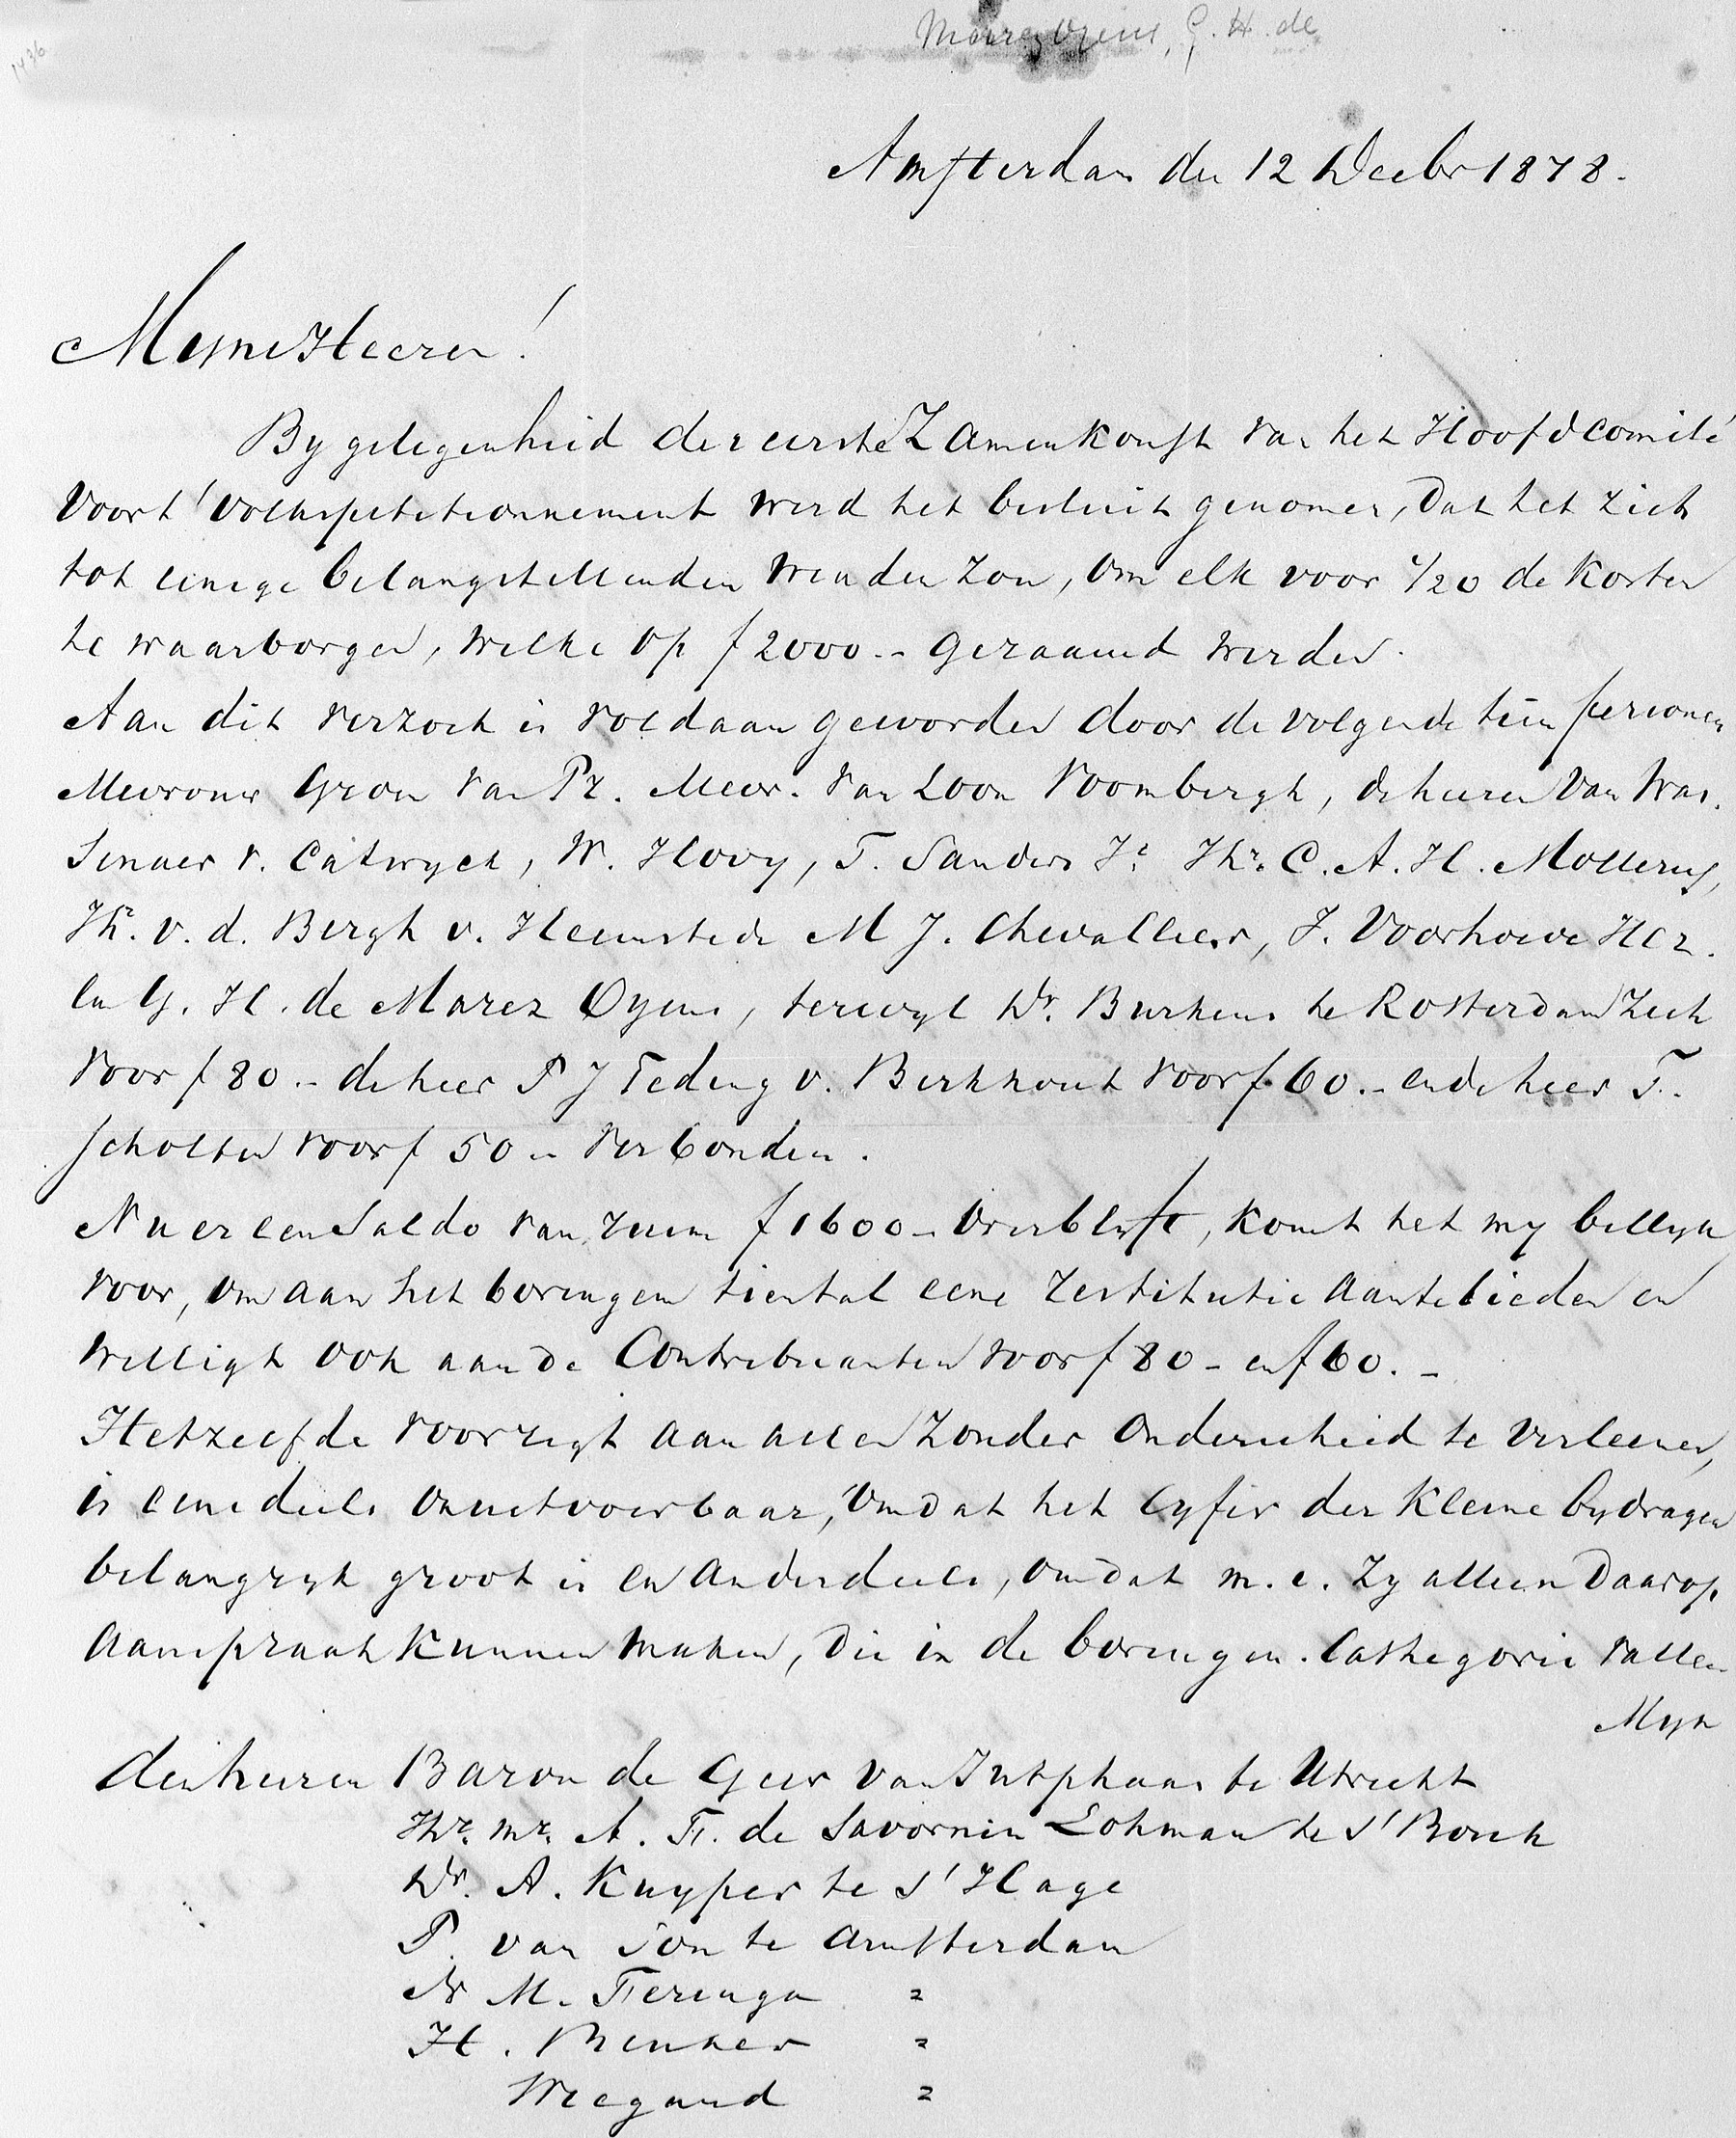 1436
Marez Oyens, G. H. de
Amsterdam den 12 Decbr 1878.
Myne Heeren!
By gelegenheid der eerste Zamenkomst van het Hoofdcomité
voor 't volkspetitionnement werd het besluit genomen, dat het zich
tot eenige belangstellenden wenden zou, om elk voor 1/20 de kosten
te waarborgen, welke op f 2000.- geraamd werden.
Aan dit verzoek is voldaan geworden door de volgende tien personen
Mevrouw Groen van Pr. Mevr. van Loon Voombergh, de heeren Van Was-
senaer v. Catwyck, W. Hovy, T. Sanders Jr. Jhr. C. A. H. Mollerus,
Jhr. v. d. Bergh v. Heemstede M J. Chevallier, J. Voorhoeve Hcz.
en G. H. de Marez Oyens, terwyl Dr. Burkens te Rotterdam zich
voor f 80.- de heer P J Teding v. Berkhout voor f 60.- en de heer T.
Scholten voor f 50.- verbonden.
Nu er een Saldo van ruim f 1600- overblyft, komt het my billyk
voor, om aan het bovengem tiental eene restitutie aantebieden en
welligt ook aan de Contribuanten voor f 80- en f 60.-
Hetzelfde voorregt aan allen zonder onderscheid te verleenen,
is eensdeels onuitvoerbaar, omdat het cyfer der kleine bydragen
belangryk groot is en anderdeels, omdat m. i. zy alleen daarop
aanspraak kunnen maken, die in de bovengem. Cathegorie vallen
Myn
den heeren Baron de Geer van Jutphaas te Utrecht
Jhr. Mr. A. F. de Savornin Lohman te s' Bosch
Dr. A. Kuyper te s' Hage
P. van Son te Amsterdam
Dr M. Feringa "
H. Beuker "
Wiegand "